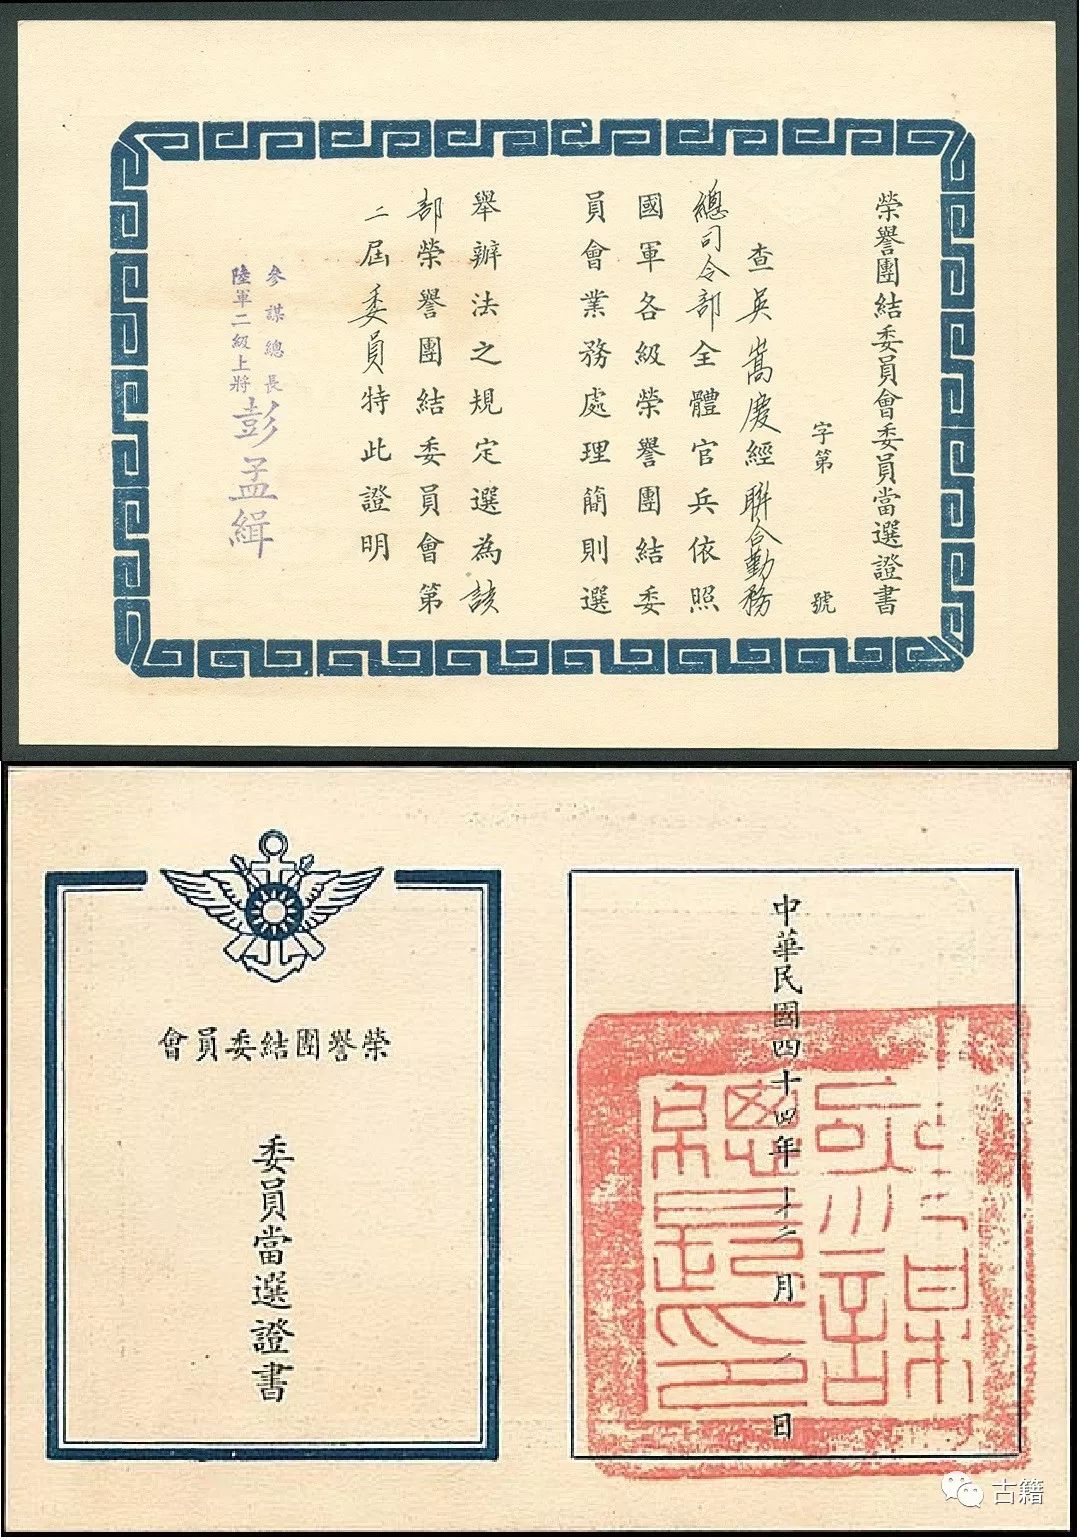 榮譽團結委員會委員當選證書
字第　號
查吳嵩慶經聯合勤務
總司令部全體官兵依照
國軍各級榮譽團結委
員會業務處理簡則選
舉辦法之規定選為該
部榮譽團結委員會第
二屆委員特此證明
參謀總長
陸軍二級上將
彭孟緝
會員委結團譽榮
委員當選證書
中華民國四十四年十二月一日
古籍